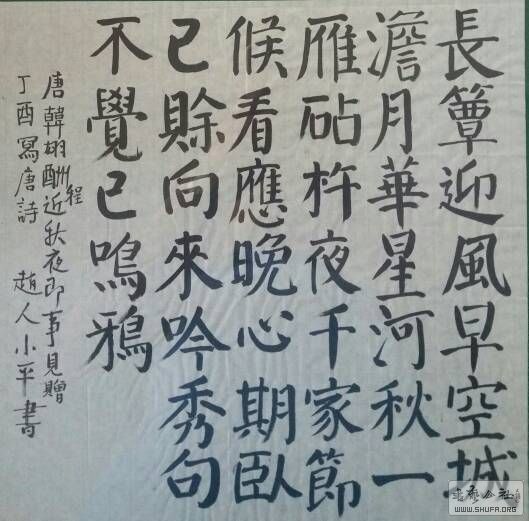 長簟迎風早空城
澹月華星河秋一
雁砧杵夜千家節
候看應晚心期臥
已賒向來吟秀句
不覺已鳴鴉
唐韓翃酬程近秋夜即事見贈
丁酉寫唐詩 趙人小平書
公社
WWW.SHUFA.ORG